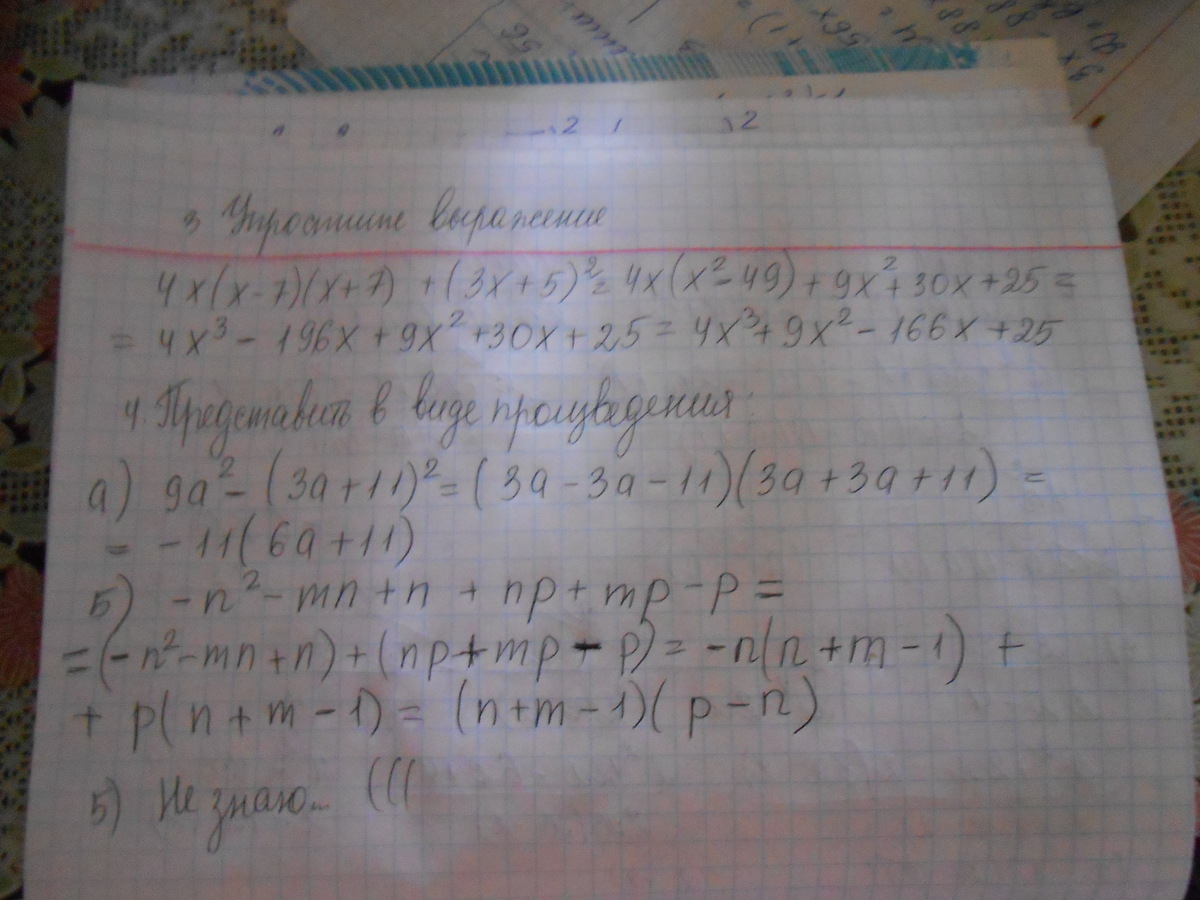 3 Упростите выражение
4x(x-7)(x+7) + (3x+5)² = 4x(x²-49) + 9x² + 30x + 25 =
= 4x³ - 196x + 9x² + 30x + 25 = 4x³ + 9x² - 166x + 25
4. Представить в виде произведения:
а) 9a² - (3a+11)² = (3a - 3a - 11)(3a + 3a + 11) =
= -11(6a+11)
Б) -n² - mn + n + np + mp - p =
= (-n² - mn + n) + (np + mp - p) = -n(n + m - 1) +
+ p(n + m - 1) = (n+m-1)(p-n)
5) Не знаю... (((